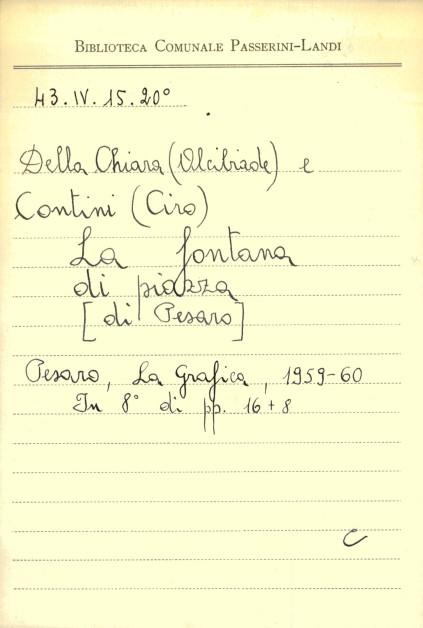 BIBLIOTECA COMUNALE PASSERINI-LANDI
43.IV.15.20°
Della Chiara (Alcibiade) e
Contini (Ciro)
La fontana
di piazza
[di Pesaro]
Pesaro, La Grafica, 1959-60
In 8° di pp. 16+8
C